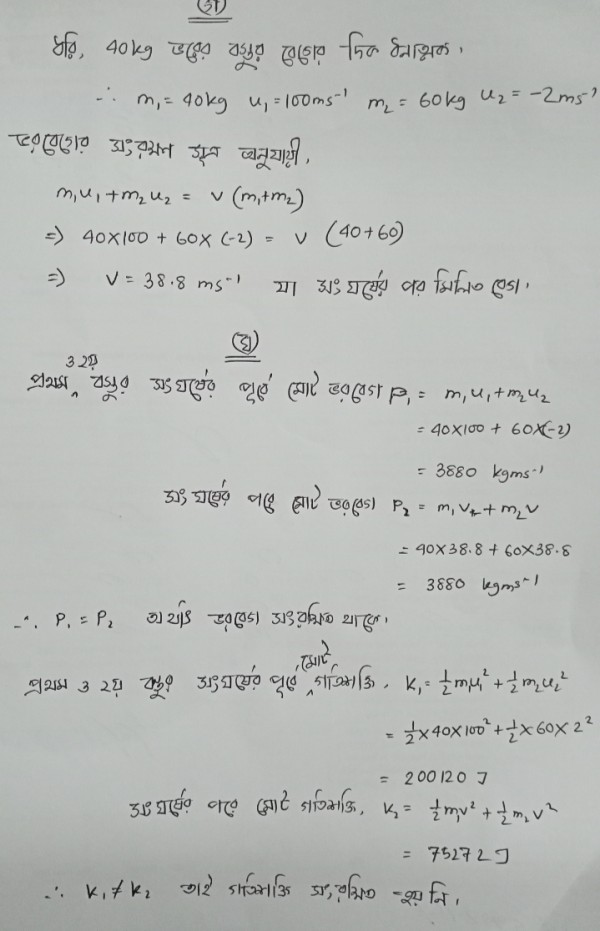 (গ)
ধরি, 40kg ভরের বস্তুর বেগের দিক ধনাত্মক।
∴ m₁ = 40kg u₁ = 100ms⁻¹ m₂ = 60kg u₂ = -2ms⁻¹
ভরবেগের সংরক্ষণ সূত্র অনুযায়ী,
m₁u₁ + m₂u₂ = v (m₁+m₂)
⇒ 40×100 + 60×(-2) = v (40+60)
⇒ v = 38.8 ms⁻¹ যা সংঘর্ষের পর মিলিত বেগ।
(ঘ)
প্রথম ও ২য় বস্তুর সংঘর্ষের পূর্বে মোট ভরবেগ P₁ = m₁u₁+m₂u₂
= 40×100 + 60×(-2)
= 3880 kgms⁻¹
সংঘর্ষের পরে মোট ভরবেগ P₂ = m₁v + m₂v
= 40×38.8 + 60×38.8
= 3880 kgms⁻¹
∴ P₁ = P₂ অর্থাৎ ভরবেগ সংরক্ষিত থাকে।
প্রথম ও ২য় বস্তুর সংঘর্ষের পূর্বে মোট গতিশক্তি, K₁ = ½m₁u₁² + ½m₂u₂²
= ½×40×100² + ½×60×2²
= 200120 J
সংঘর্ষের পরে মোট গতিশক্তি, K₂ = ½m₁v² + ½m₂v²
= 75272 J
∴ K₁ ≠ K₂ তাই গতিশক্তি সংরক্ষিত হয়নি।